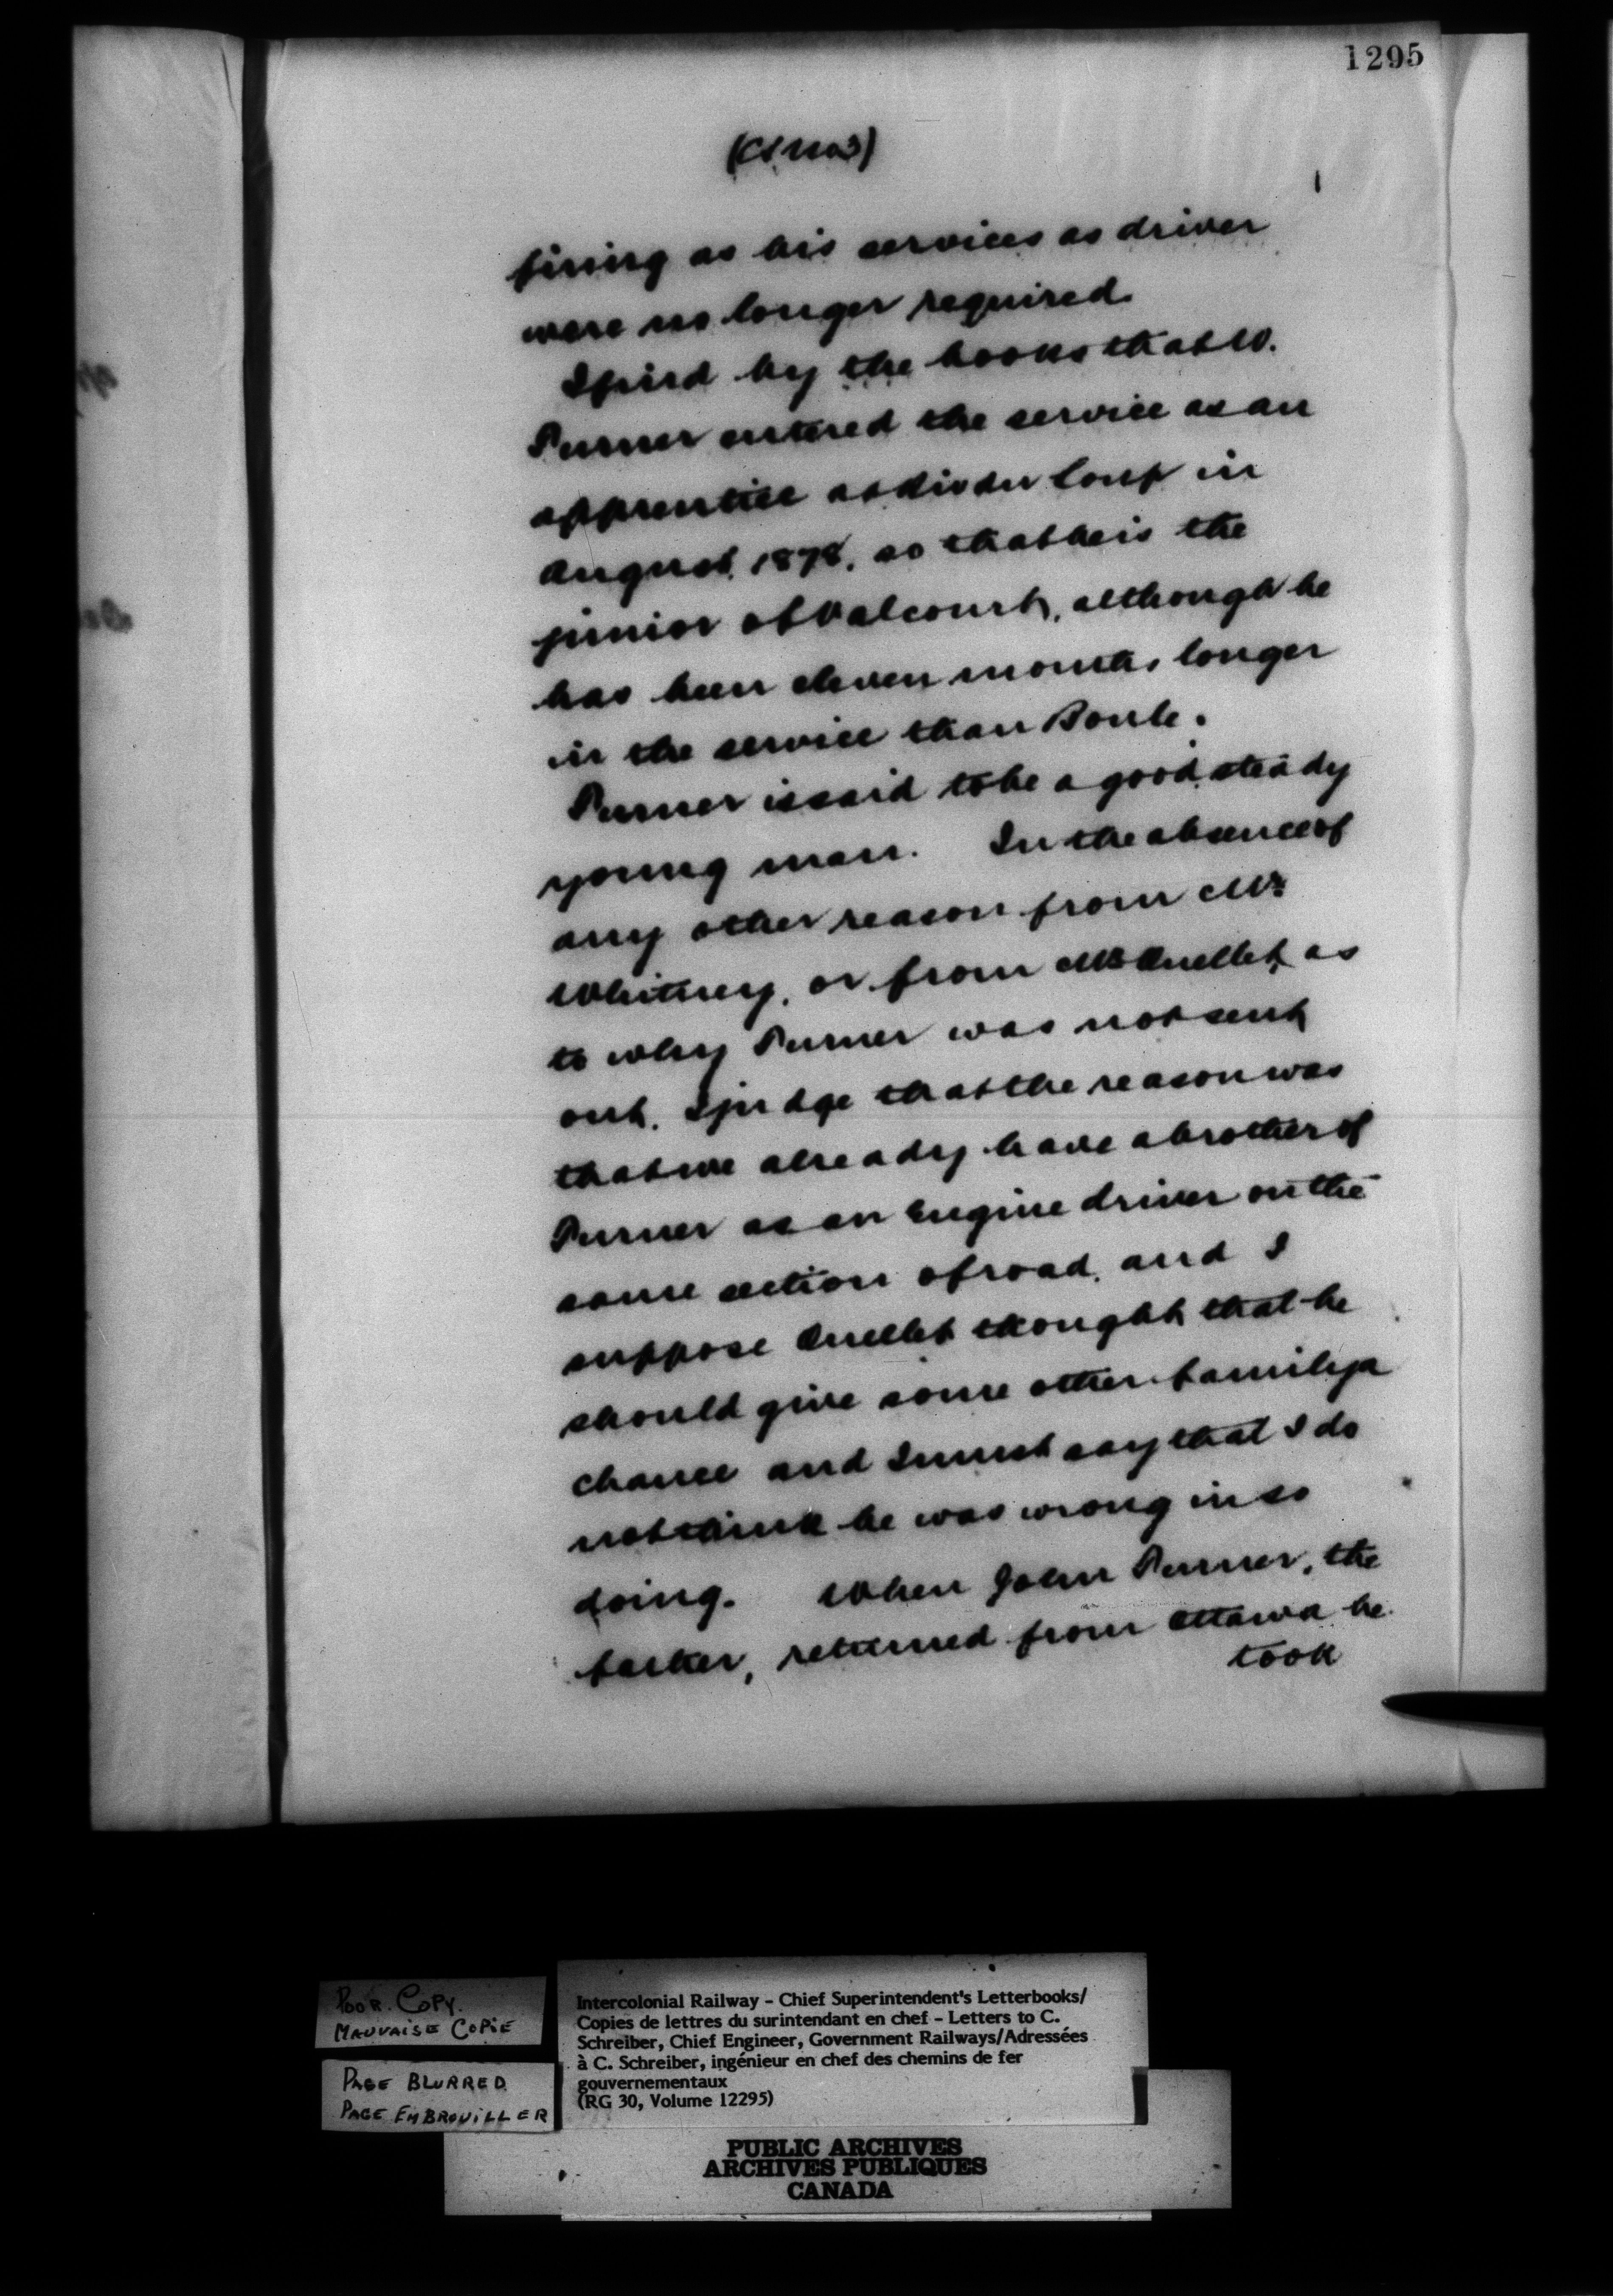 1295
(CS No 3)
firing as his services as driver
were no longer required.
I find by the books that W.
Purner entered the service as an
apprentice at River du Loup in
August, 1878, so that he is the
junior of Valcourt, although he
has been eleven months longer
in the service than Boule.
Purner is said to be a good, steady
young man. In the absence of
any other reason from Mr
Whitney, or from Mr Ouellet, as
to why Purner was not sent
out, I judge that the reason was
that we already have a brother of
Purner as an Engine driver on the
same section of road, and I
suppose Ouellet thought that he
should give some other family a
chance and I must say that I do
not think he was wrong in so
doing. When John Purner, the
father, returned from Ottawa he
took
POOR COPY.
MAUVAISE COPIE
PAGE BLURRED
PAGE EMBROUILLER
Intercolonial Railway - Chief Superintendent's Letterbooks/
Copies de lettres du surintendant en chef - Letters to C.
Schreiber, Chief Engineer, Government Railways/Adressées
à C. Schreiber, ingénieur en chef des chemins de fer
gouvernementaux
(RG 30, Volume 12295)
PUBLIC ARCHIVES
ARCHIVES PUBLIQUES
CANADA